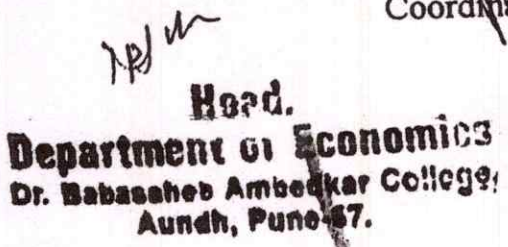 Coordina
Head.
Department of Economics
Dr. Babasaheb Ambedkar College,
Aundh, Pune-67.